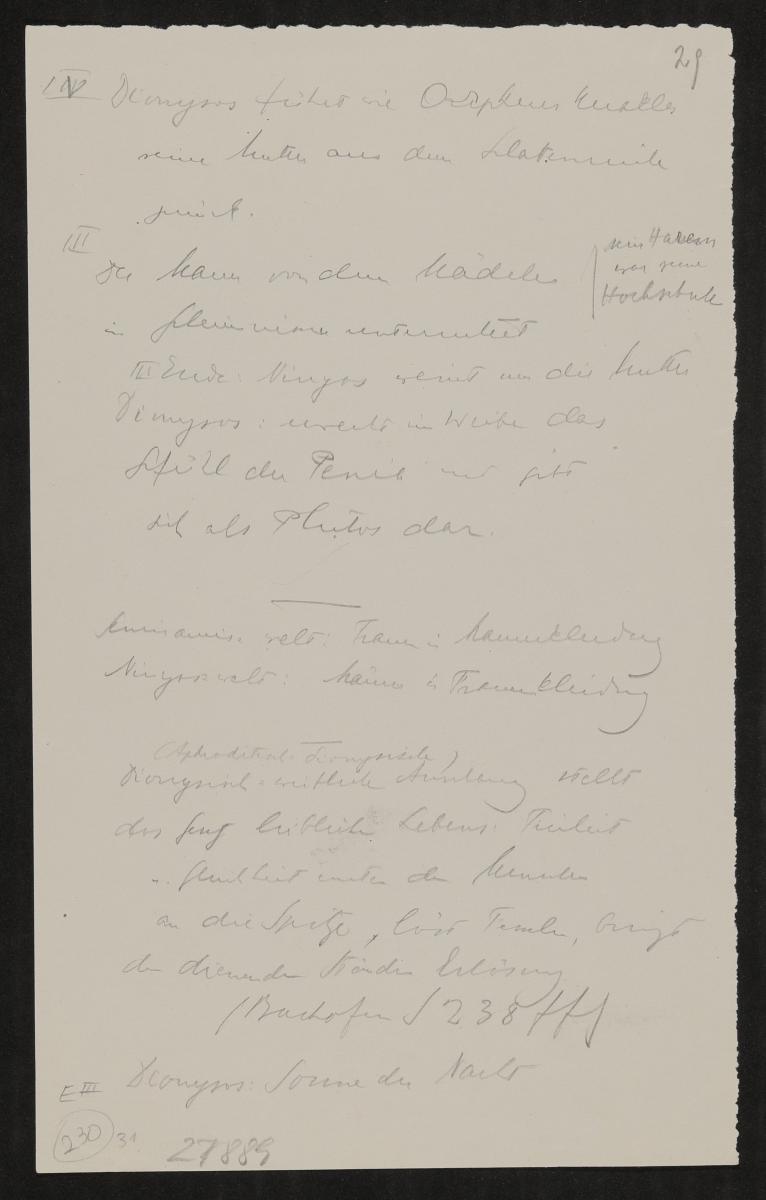 29
IV Dionysos führt wie Orpheus Herakles
seine Mutter aus dem Schattenreiche
zurück.
III
Der Mann von den Mädchen
sein Harem
war seine
Hochschule
in unterrichtet
III Ende: Ninyas weint um die Mutter
Dionysos: erweckt im Weibe das
Gefühl der Penia und gibt
sich als Plutos dar.
Semiramis welt: Frauen in Männerkleidung
Ninyaswelt: Männer in Frauenkleidung
(Aphroditisch-Dionysische)
Dionysisch-weibliche stellt
das leiblichen Lebens: Freiheit
u. Gleichheit unter den Menschen
an die Spitze, löst Fesseln, bringt
den dienenden Ständen Erlösung
(Bachofen S 238 ff)
E III Dionysos: Sonne der Nacht
230 31 27889